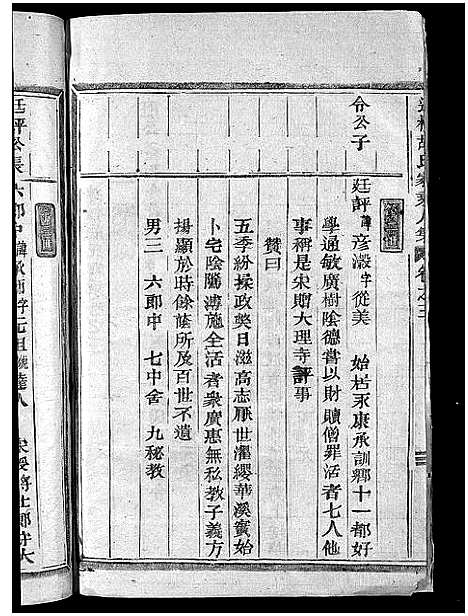 令公子
廷評諱彥澂字從美 始居永康承訓鄉十一都好
學通敏廣樹陰德嘗以財贖僧罪活者七人他
事稱是宋贈大理寺評事
贊曰
五季紛揉政獘日滋高志厭世濯纓華溪寔始
卜宅陰隲溥施全活者衆廣惠無私教子義方
揚顯於時餘蔭所及百世不遺
男三 六郎中 七中舍 九秘教
廷評公長
六郎中諱承